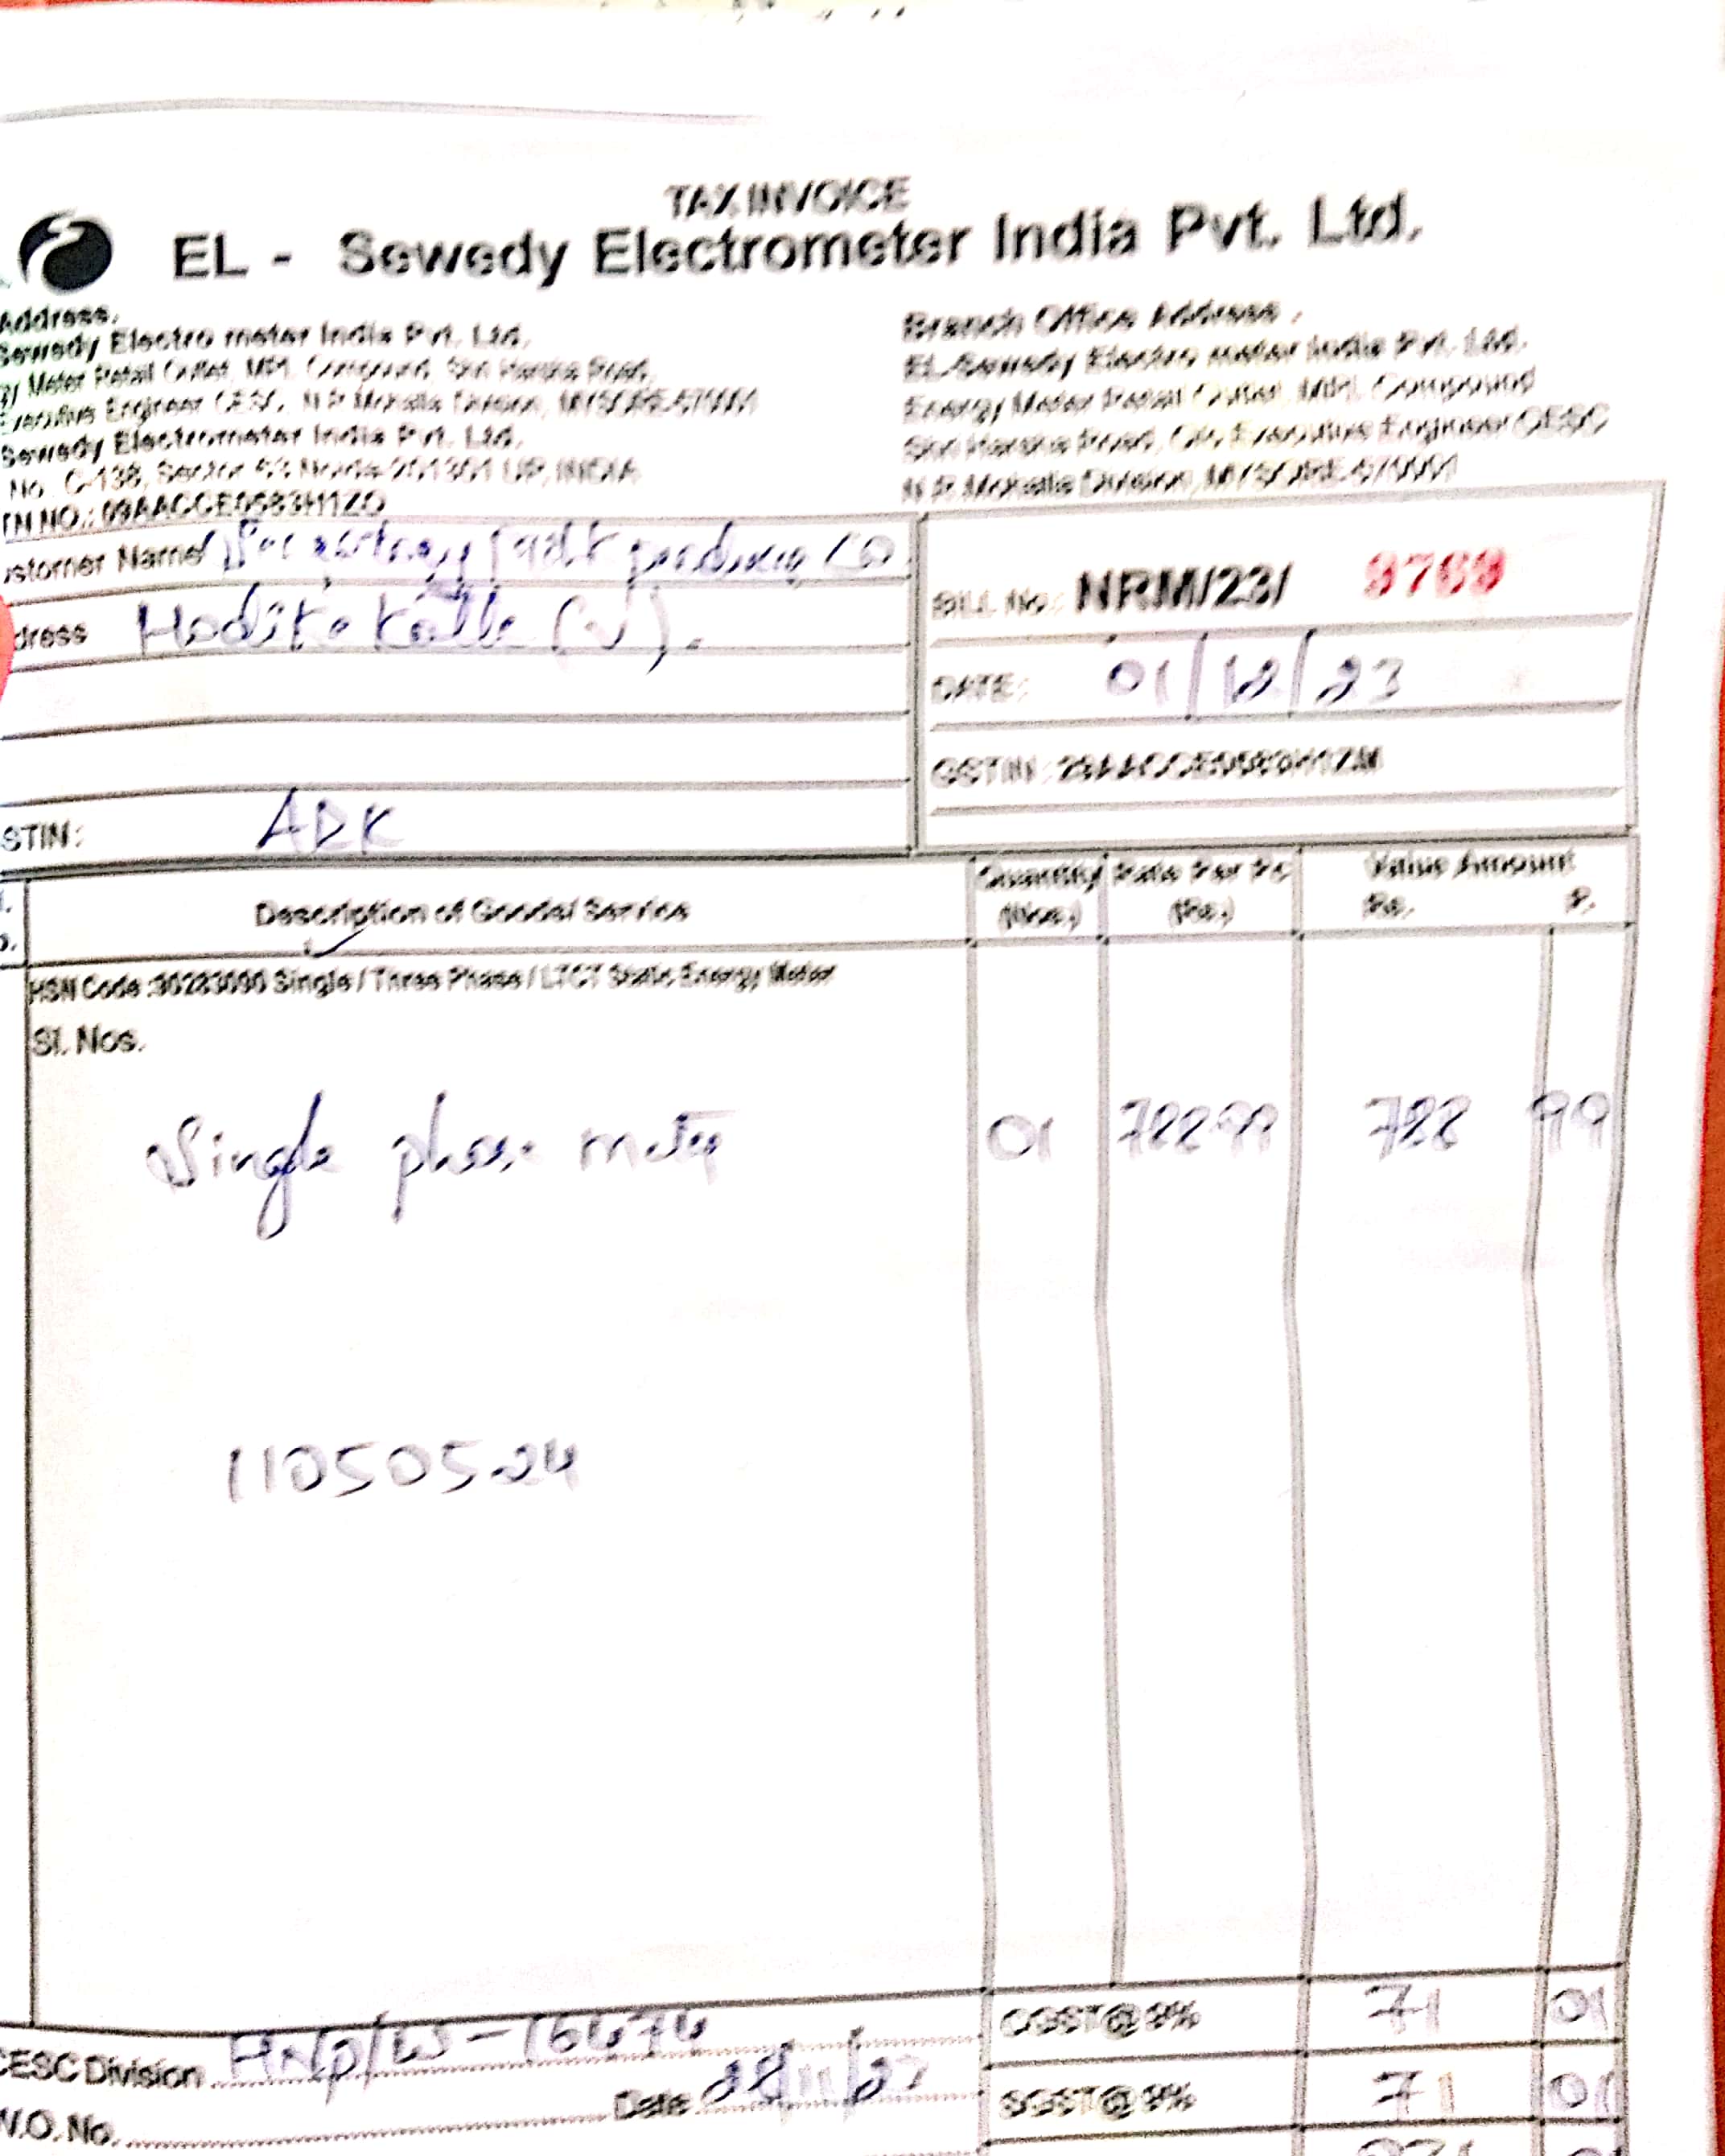 TAX INVOICE
EL - Sewedy Electrometer India Pvt. Ltd.
Address.
Sewedy Electro meter India Pvt. Ltd.
gy Meter Retail Outlet, MRL Compound, Shri Harsha Road,
Executive Engineer CESC, N R Mohalla Division, MYSORE-570001
Sewedy Electrometer India Pvt. Ltd.
No. C-138, Sector 63 Noida-201301 UP, INDIA
TN NO.: 09AACCE0583H1ZO
Branch Office Address,
EL-Sewedy Electro meter India Pvt. Ltd.
Energy Meter Retail Outlet, MRL Compound
Shri Harsha Road, C/o Executive Engineer CESC
N R Mohalla Division, MYSORE-570001
ustomer Name
dress Hadike Katte (V).
STIN: ADK
BILL No: NRM/23/ 9769
DATE: 01/12/23
GSTIN : 29AACCE0583H1ZM
Description of Goods/ Service
Quantity (Nos.)
Rate Per Pc (Rs.)
Value Amount
Rs. P.
HSN Code :90283090 Single / Three Phase / LTCT Static Energy Meter
Sl. Nos.
Single phase meter 01 788.99 788 99
11050524
CESC Division
W.O. No.
Date 28/11/23
CGST@9% 71 01
SGST@9% 71 01